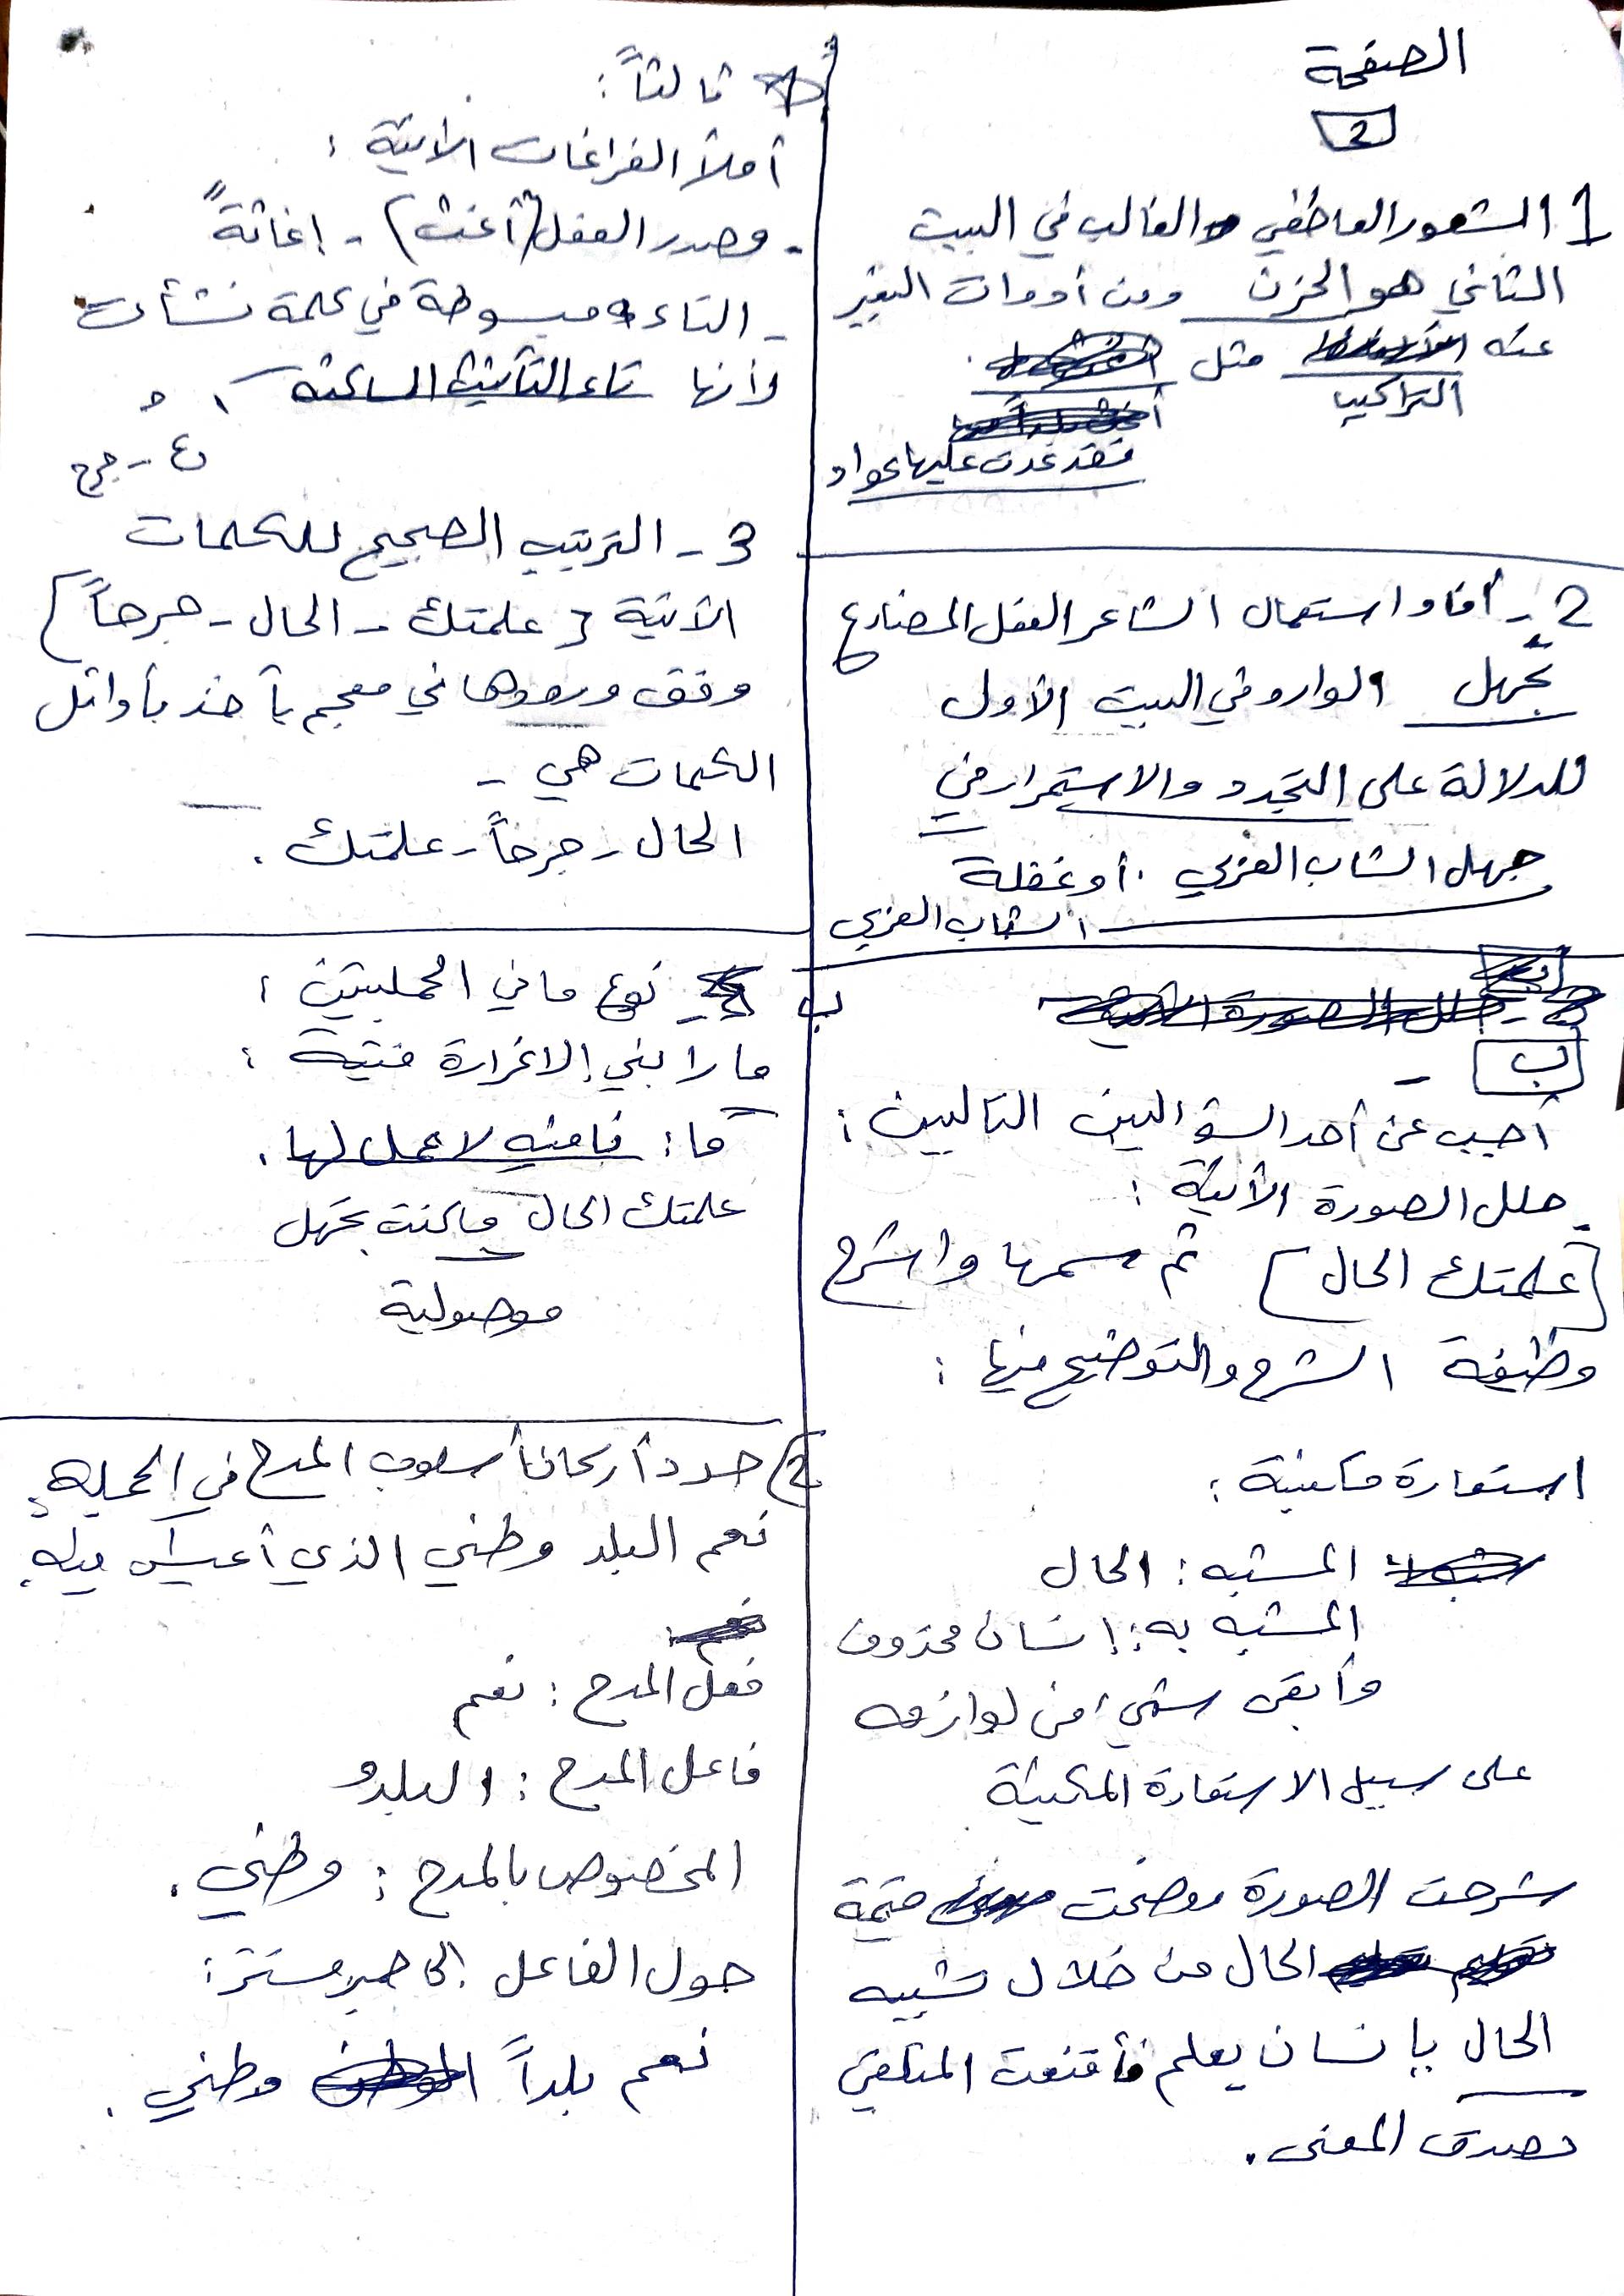 الصفحة
2
1 الشعور العاطفي الغالب في البيت
الثاني هو الحزن ومن أدوات التعبير
عنه مثل
التراكيب
فقد غدت عليها عواد
2 - أفاد استعمال الشاعر الفعل المضارع
تجهل الوارد في البيت الأول
للدلالة على التجدد والاستمرار في
جهل الشاب العربي . أو غفلة
الشاب العربي
ب -
أجب عن أحد السؤالين التاليين :
- حلل الصورة الآتية :
(علمتك الحال) ثم سمها واشرح
وظيفة الشرح والتوضيح فيها :
استعارة مكنية :
المشبه : الحال
المشبه به : إنسان محذوف
وأبقى شيء من لوازمه
على سبيل الاستعارة المكنية
شرحت الصورة ووضحت قيمة
الحال من خلال تشبيه
الحال بإنسان يعلم فأقنعت المتلقي
بصدق المعنى .
ثالثاً :
أملأ الفراغات الآتية :
- مصدر الفعل (أغث) - إغاثةً
- التاء مبسوطة في كلمة نشأت
لأنها تاء التأنيث الساكنة
3 - الترتيب الصحيح للكلمات
الآتية (علمتك - الحال - جرحاً)
وفق ورودها في معجم يأخذ بأوائل
الكلمات هي -
الحال - جرحاً - علمتك .
ب نوع ما في الجملتين :
ما رابني إلا غرارة فتية :
ما : نافية لا عمل لها .
علمتك الحال ما كنت تجهل
موصولية
2) حدد أركان أسلوب المدح في الجملة :
نعم البلد وطني الذي أعيش فيه .
فعل المدح : نعم
فاعل المدح : البلد
المخصوص بالمدح : وطني .
حول الفاعل إلى ضمير مستتر :
نعم بلداً وطني .